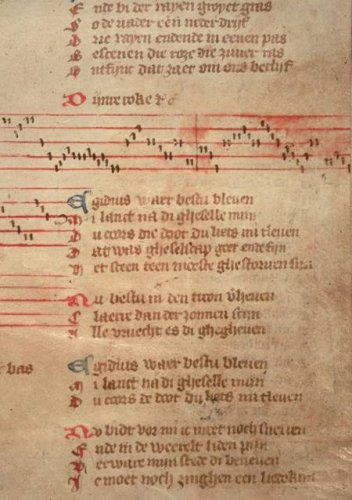 Ende bi der rapen gropet gras
Drie rapen
escenen die roze die zuver ras
ontfinc dat zaer om ons berijf
Egidius waer bestu bleven
Mi lanct na di gheselle mijn
Du coors die doot du liets mi tleven
Dat was gheselscap goet ende fijn
Het sceen teen moeste ghestorven sijn
Nu bestu in den troon vheven
Claerre dan der zonnen scijn
Alle vruecht es di ghegheven
bas
Egidius waer bestu bleven
Mi lanct na di gheselle mijn
Du coors die doot du liets mi tleven
Nu bidt vor mi ic moet noch sneven
Ende in de weerelt liden pijn
Verware mijn stede di beneven
Ic moet noch zinghen een liedekijn